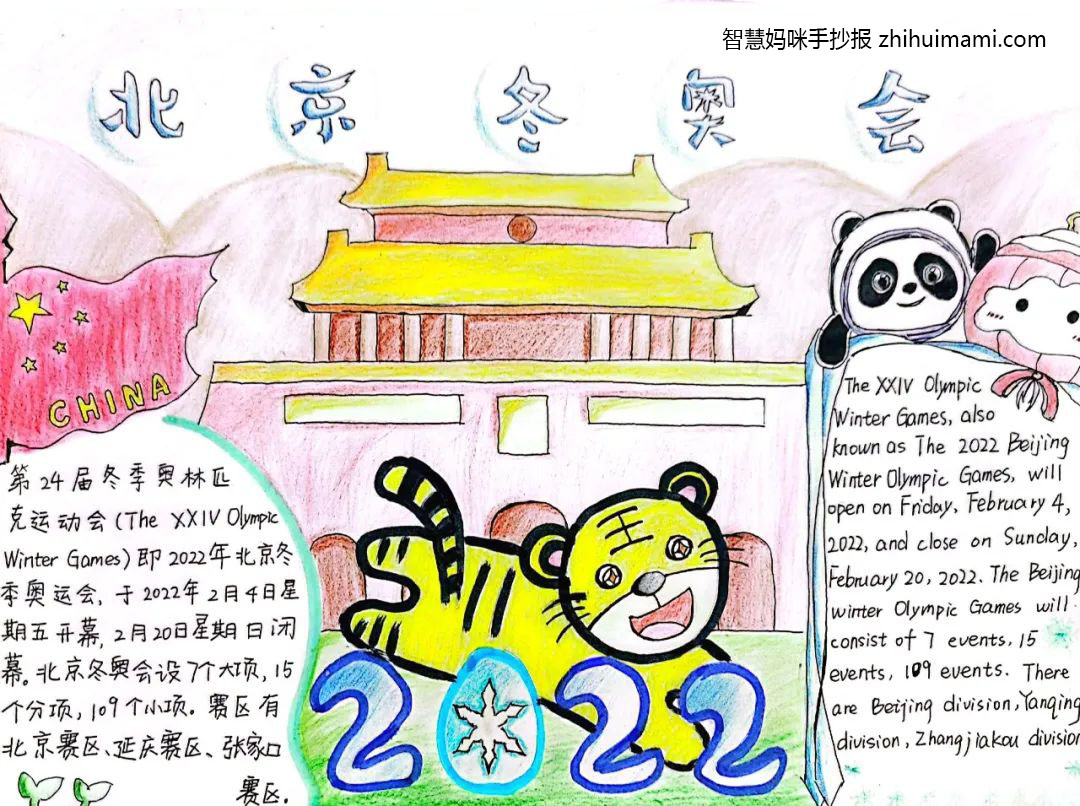 智慧妈咪手抄报 zhihuimami.com
北京冬奥会
CHINA
第24届冬季奥林匹
克运动会(The XXIV Olympic
Winter Games)即2022年北京冬
季奥运会,于2022年2月4日星
期五开幕,2月20日星期日闭
幕。北京冬奥会设7个大项,15
个分项,109个小项。赛区有
北京赛区、延庆赛区、张家口
赛区.
王
2022
The XXIV Olympic
Winter Games, also
known as The 2022 Beijing
Winter Olympic Games, will
open on Friday, February 4,
2022, and close on Sunday,
February 20, 2022. The Beijing
winter Olympic Games will
consist of 7 events, 15
events, 109 events. There
are Beijing division, Yanqing
division, Zhangjiakou division